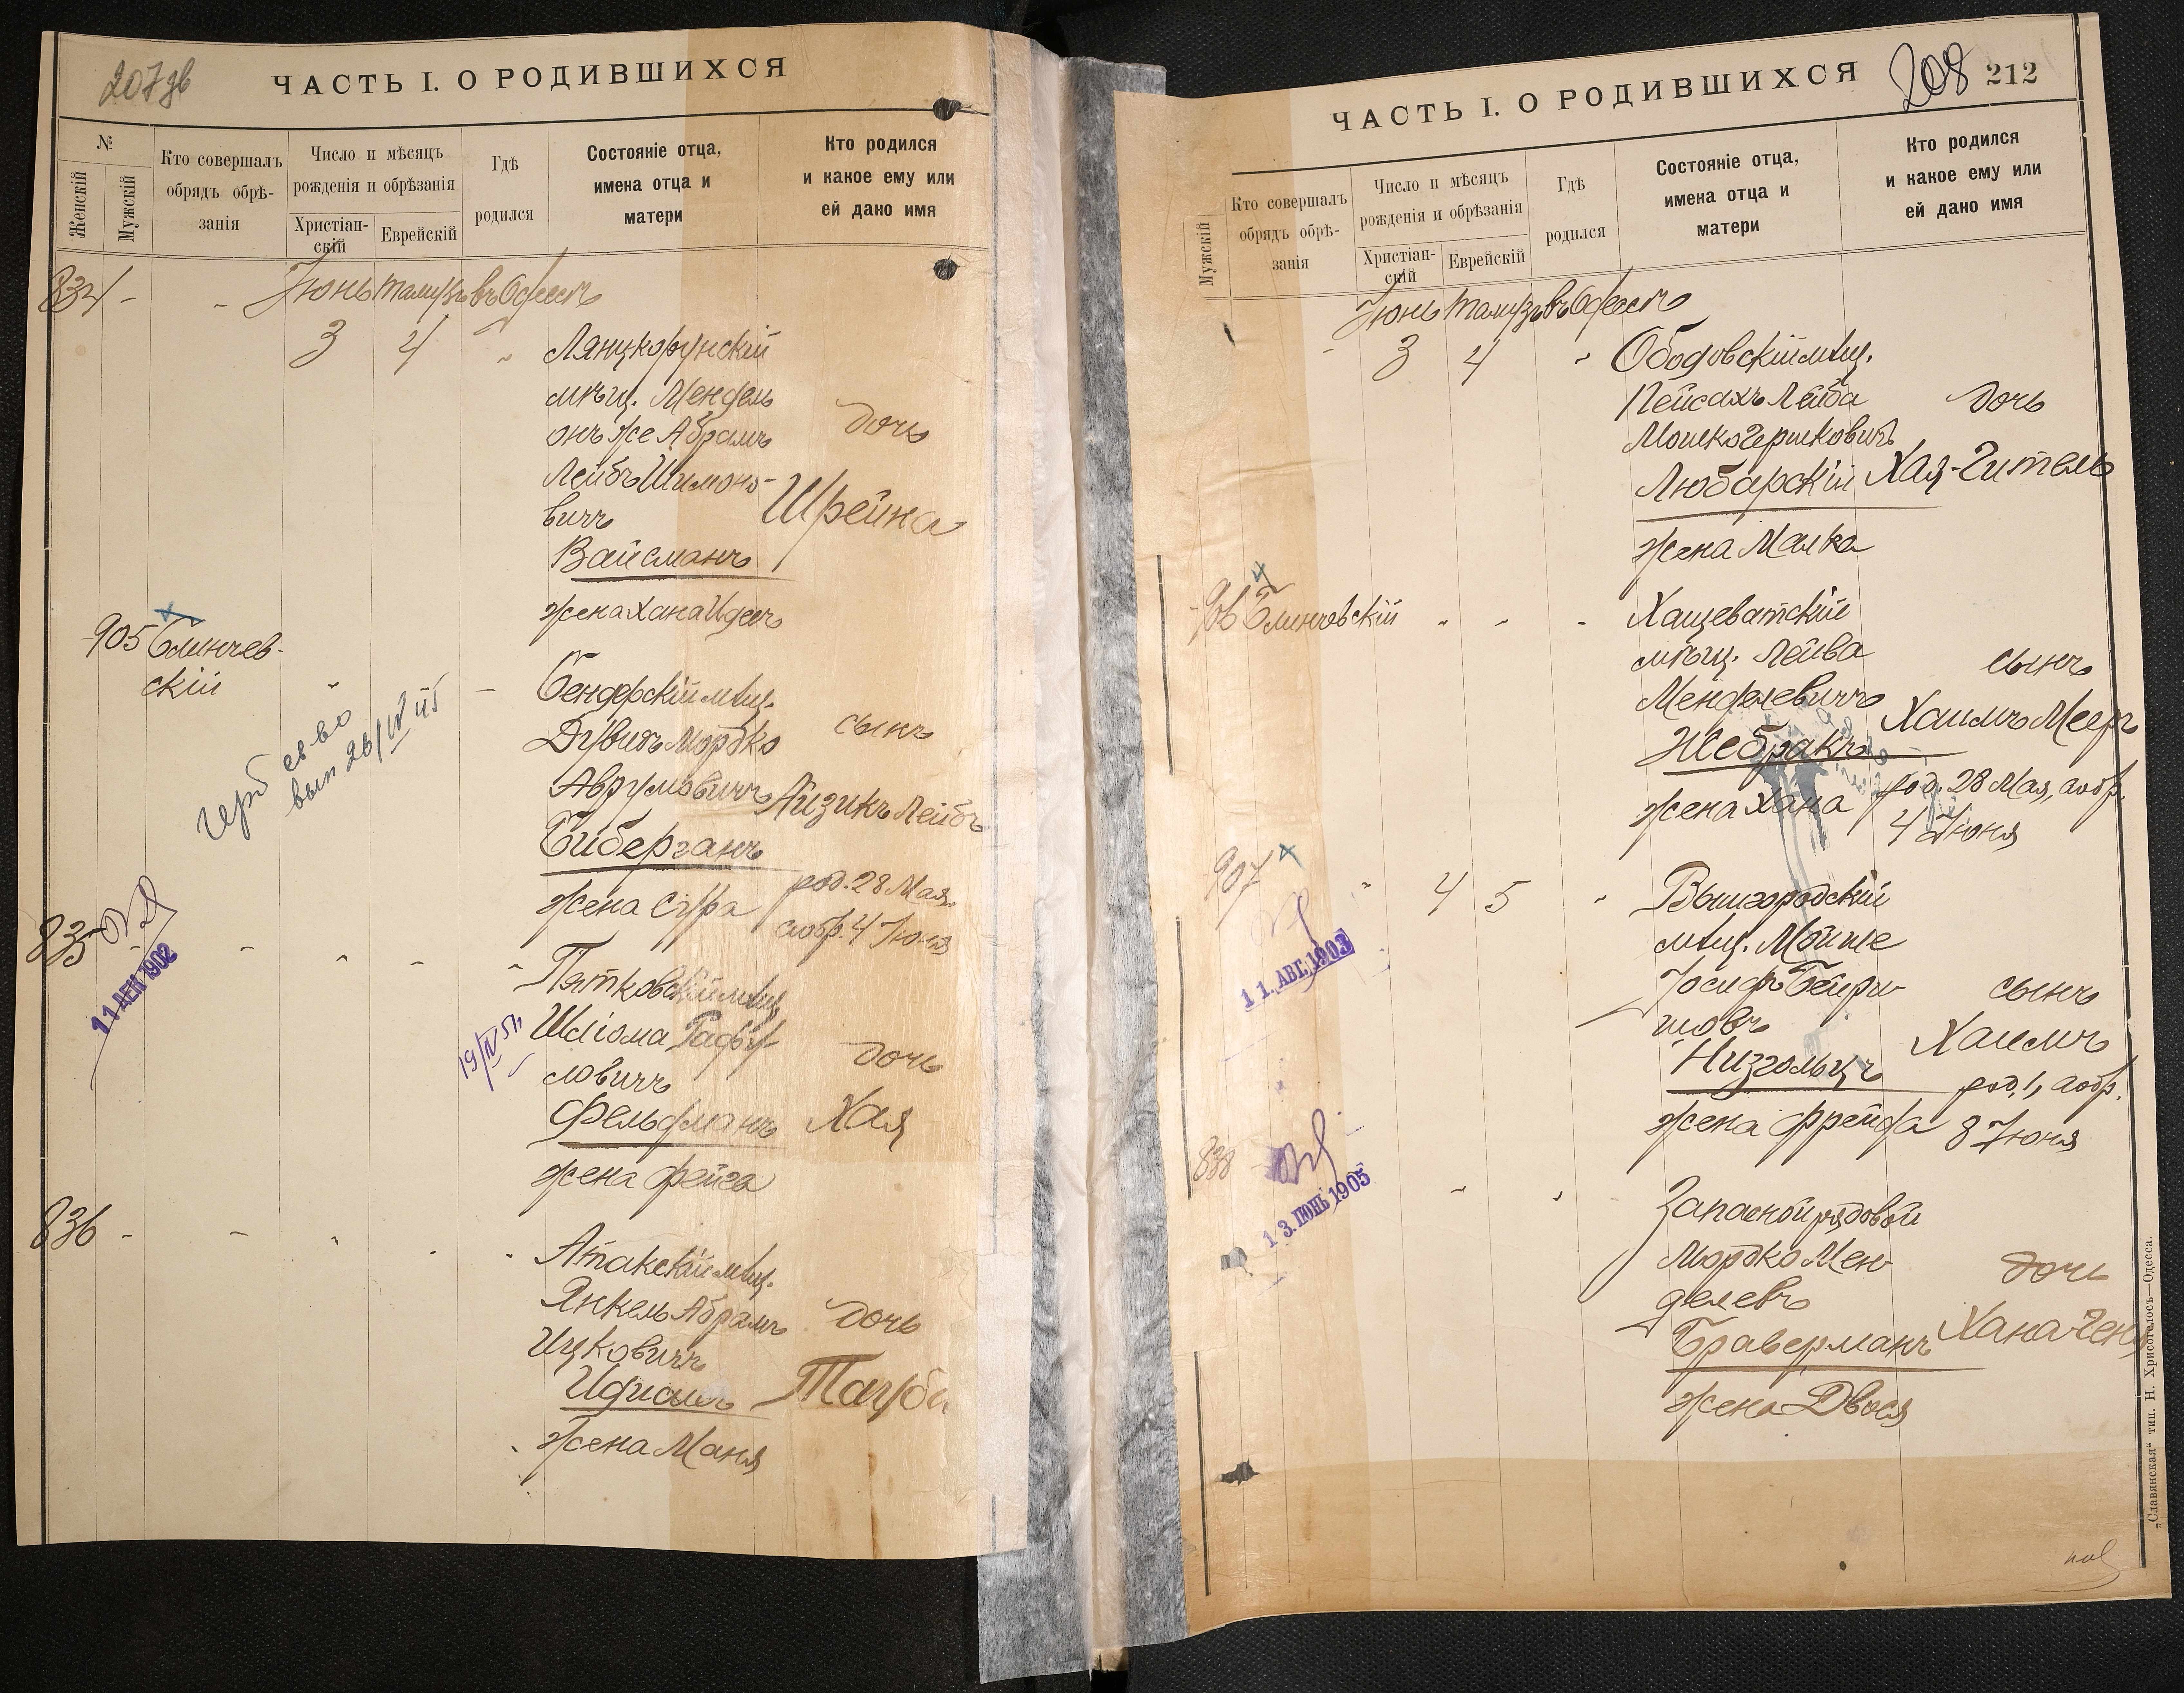 207 зв
ЧАСТЬ I. О РОДИВШИХСЯ
№
Женскій
Мужскій
Кто совершалъ
обрядъ обрѣ-
занія
Число и мѣсяцъ
рожденія и обрѣзанія
Христіан-
скій
Еврейскій
Гдѣ
родился
Состояніе отца,
имена отца и
матери
Кто родился
и какое ему или
ей дано имя
834 - - Іюнь Тамузъ въ Одессѣ
3 4 "
Лянцкорунскій
мѣщ. Мендель
онъ же Абрамъ
Лейбъ Шимоно-
вичъ
Вайсманъ
жена Хана Идесъ
дочь
Шрейна
905 Блинчев-
скій
Бендерскій мѣщ.
Дувидъ Мордко
Аврумовичъ
Биберганъ
жена Сура
сынъ
Айзикъ Лейбъ
род. 28 Мая,
а обр. 4 Іюня
герб св-во
вып 26/IV
835
11 ДЕК 1902
19/IV 51
Пятковскій мѣщ.
Шлiома Рафу-
ловичъ
Фельдманъ
жена Фейга
дочь
Хая
836 - - " . "
Атакскій мѣщ.
Янкель Абрамъ
Ицковичъ
Идисъ
жена Маня
дочь
Тауба
ЧАСТЬ I. О РОДИВШИХСЯ
208 212
Мужскій
Кто совершалъ
обрядъ обрѣ-
занія
Число и мѣсяцъ
рожденія и обрѣзанія
Христіан-
скій
Еврейскій
Гдѣ
родился
Состояніе отца,
имена отца и
матери
Кто родился
и какое ему или
ей дано имя
Іюнь Тамузъ въ Одессѣ
- 3 4 "
Ободовскій мѣщ.
Пейсахъ Лейба
Мошко Гершковичъ
Любарскій
жена Малка
дочь
Хая-Гитель
906 Блинчевскій " - -
Хащеватскій
мѣщ. Лейва
Менделевичъ
Жебракъ
жена Хана
сынъ
Хаимъ Мееръ
род. 28 Мая, а обр.
4 Іюня
907 " 4 5 "
11. АВГ. 1903
Вышгородскій
мѣщ. Мойше
Іосифъ Бейри-
шовъ
Низгольцъ
жена Фрейда
сынъ
Хаимъ
род. 1, а обр.
8 Іюня
838
13. ІЮНЬ 1905
Запасной рядовой
Мордко Мен-
делевъ
Браверманъ
жена Двося
дочь
Хана Геня
„Славянская“ тип. Н. Хрисогелосъ—Одесса.